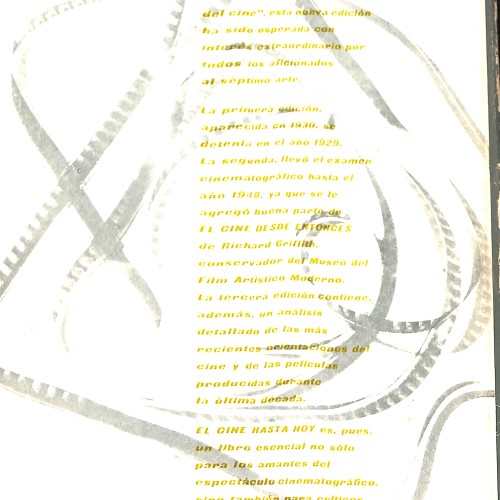 del cine", esta nueva edición
ha sido esperada con
interés extraordinario por
todos los aficionados
al séptimo arte.
La primera edición,
aparecida en 1930, se
detenía en el año 1929.
La segunda, llevó el examen
cinematográfico hasta el
año 1948, ya que se le
agregó buena parte de
EL CINE DESDE ENTONCES
de Richard Griffith,
conservador del Museo del
Film Artístico Moderno.
La tercera edición contiene,
además, un análisis
detallado de las más
recientes orientaciones del
cine y de las películas
producidas durante
la última década.
EL CINE HASTA HOY es, pues,
un libro esencial no sólo
para los amantes del
espectáculo cinematográfico,
sino también para críticos